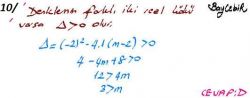 10/ ' Denklemin farklı iki reel kökü BayÇebir
varsa Δ>0 olur.
Δ=(-2)²-4.1(m-2)>0
4-4m+8>0
12>4m
3>m
CEVAP:D